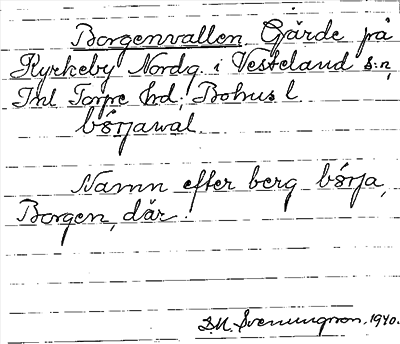 Borgenvallen Gärde på
Kyrkeby Nordg. i Vesteland s:n,
Inl Torpe hd; Bohus l.
bórjawal.
Namn efter berg bórja,
Borgen, där.
S.M. Svenungson. 1940.